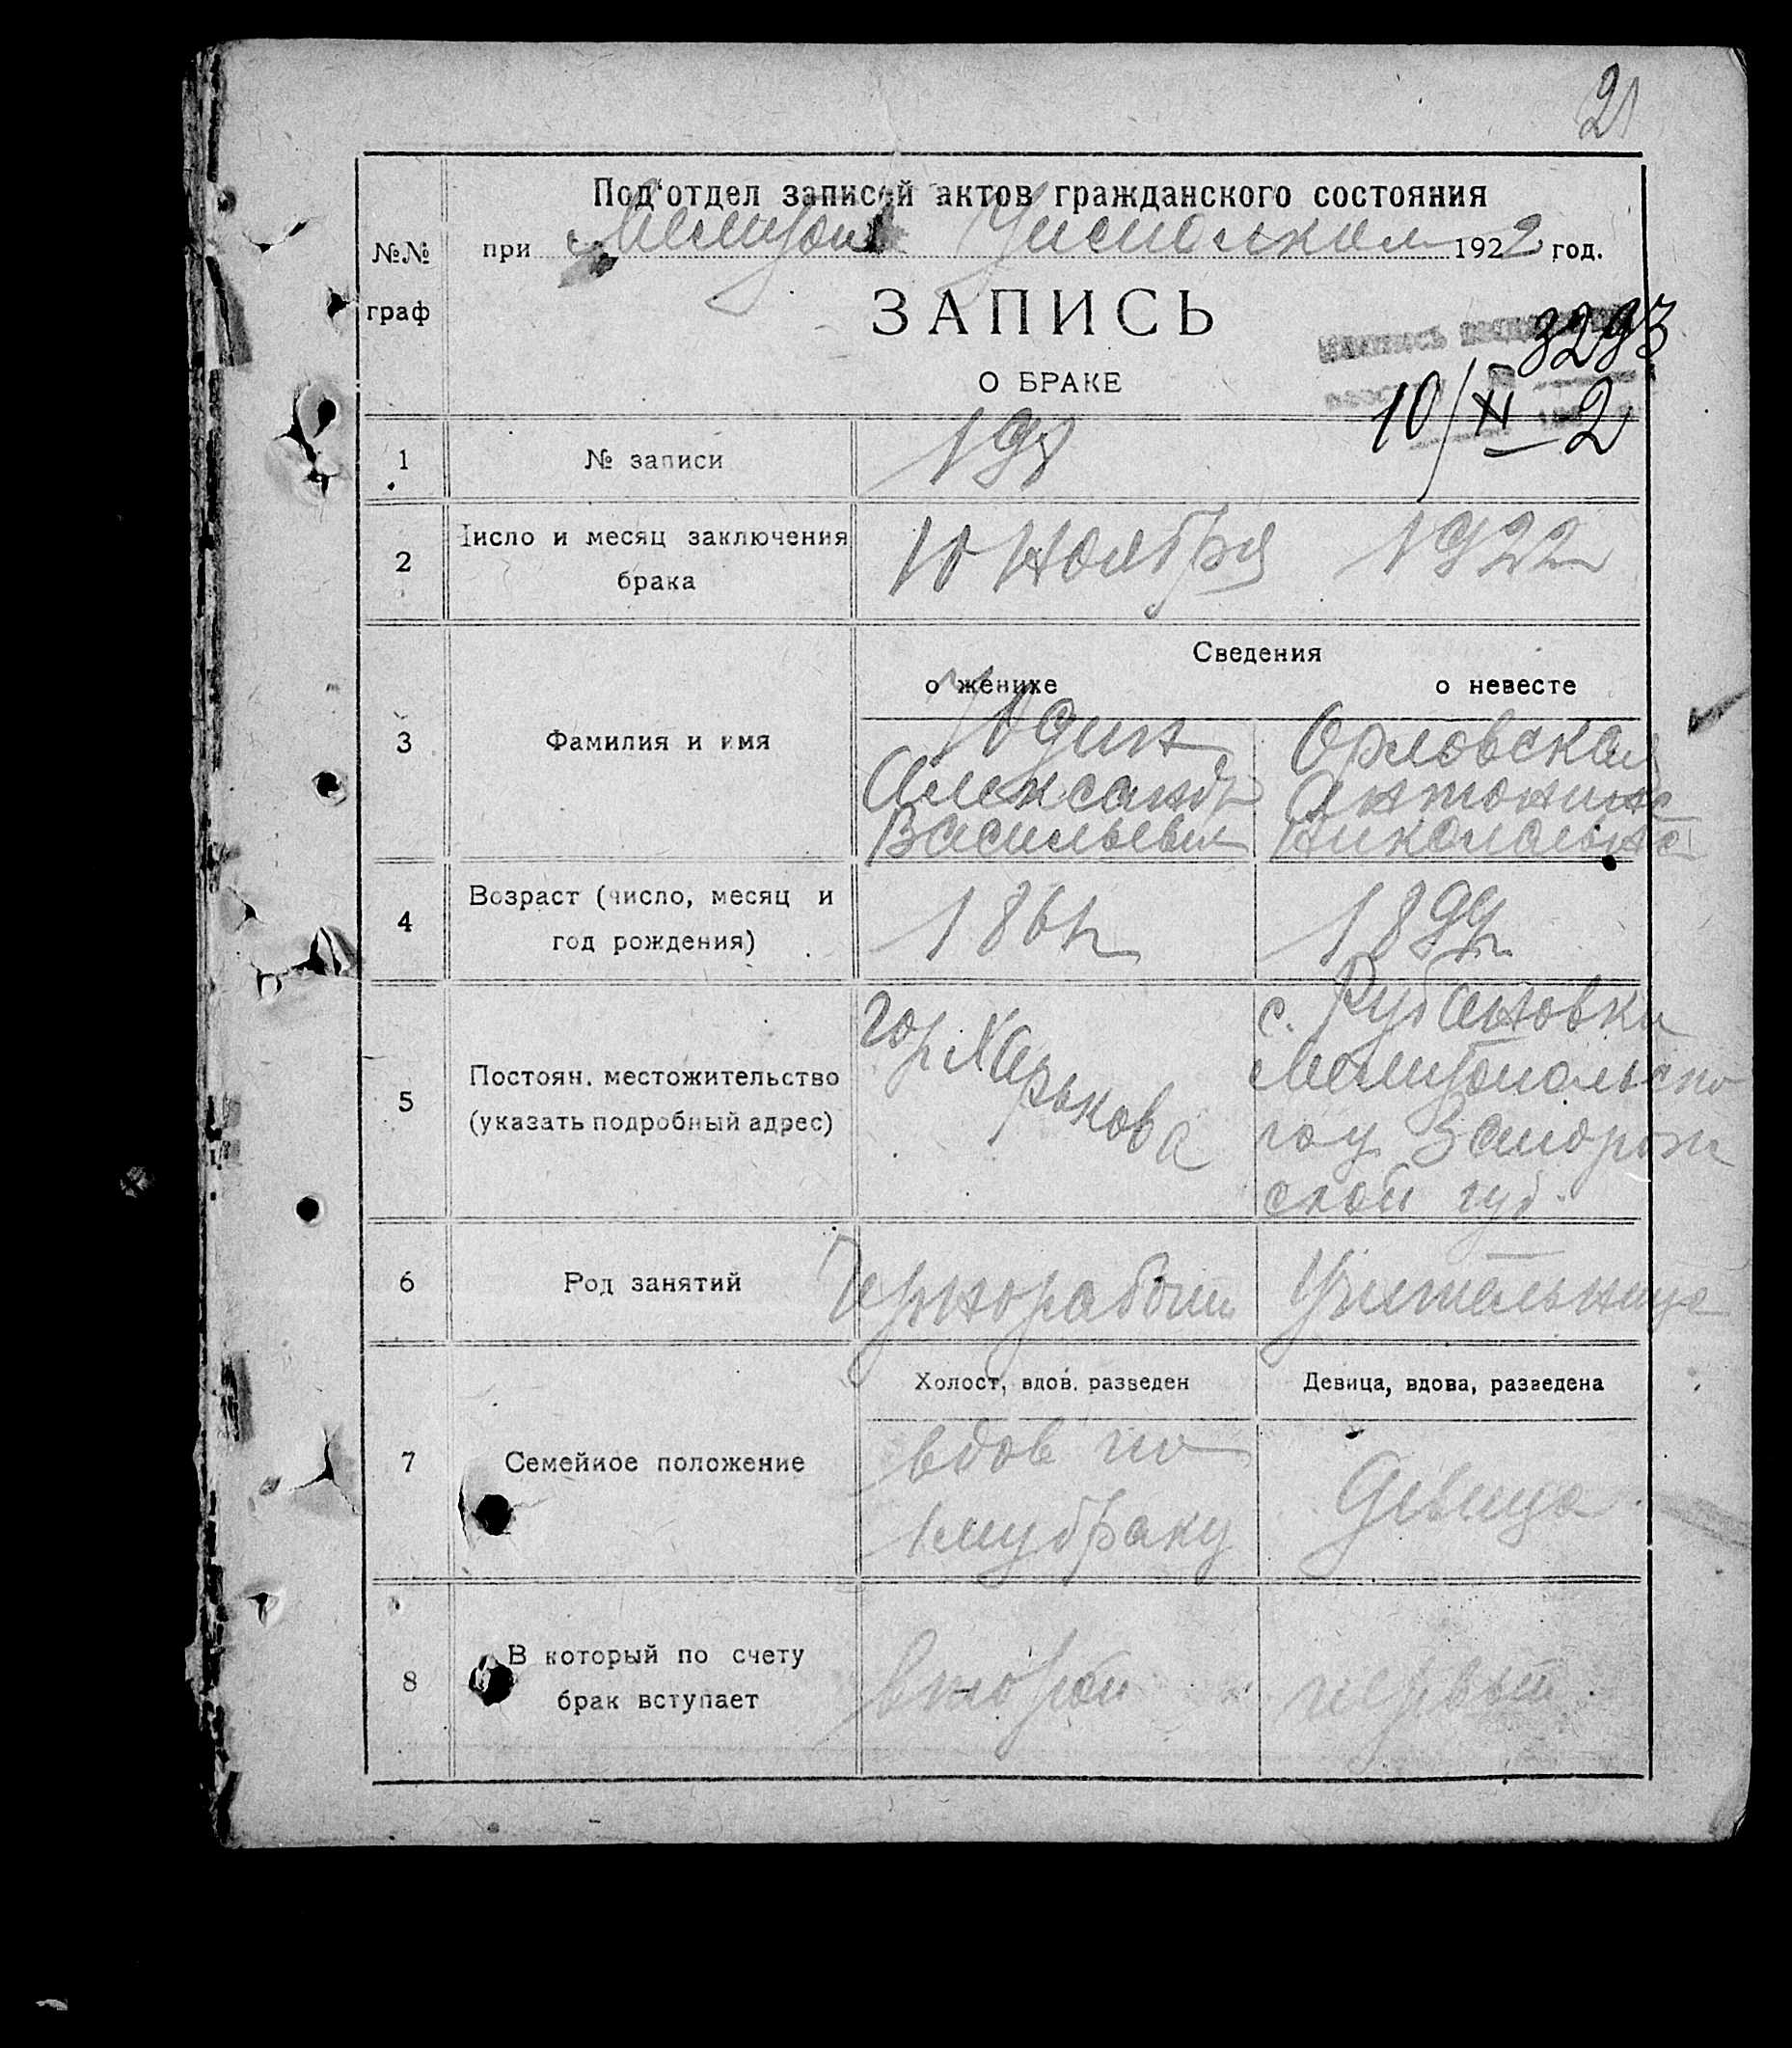 21
Под‘отдел записей актов гражданского состояния
№№
граф
при Мелитоп Уисполком 1922 год.
ЗАПИСЬ
О БРАКЕ
3293
10/XI—2
1
№ записи
198
2
Число и месяц заключения
брака
10 Ноября 1922
Сведения
о женихе
о невесте
3
Фамилия и имя
Юдин
Александр
Васильевич
Орловская
Антонина
Николаевна
4
Возраст (число, месяц и
год рождения)
186
189
5
Постоян. местожительство
(указать подробный адрес)
гор. Харькова
с. Рубановки
Мелитопольско
го у. Запорож
ской губ.
6
Род занятий
Чернорабочий
Учительница
7
Семейное положение
Холост, вдов. разведен
Девица, вдова, разведена
вдов по
1му браку
Девица
8
В который по счету
брак вступает
второй
первый